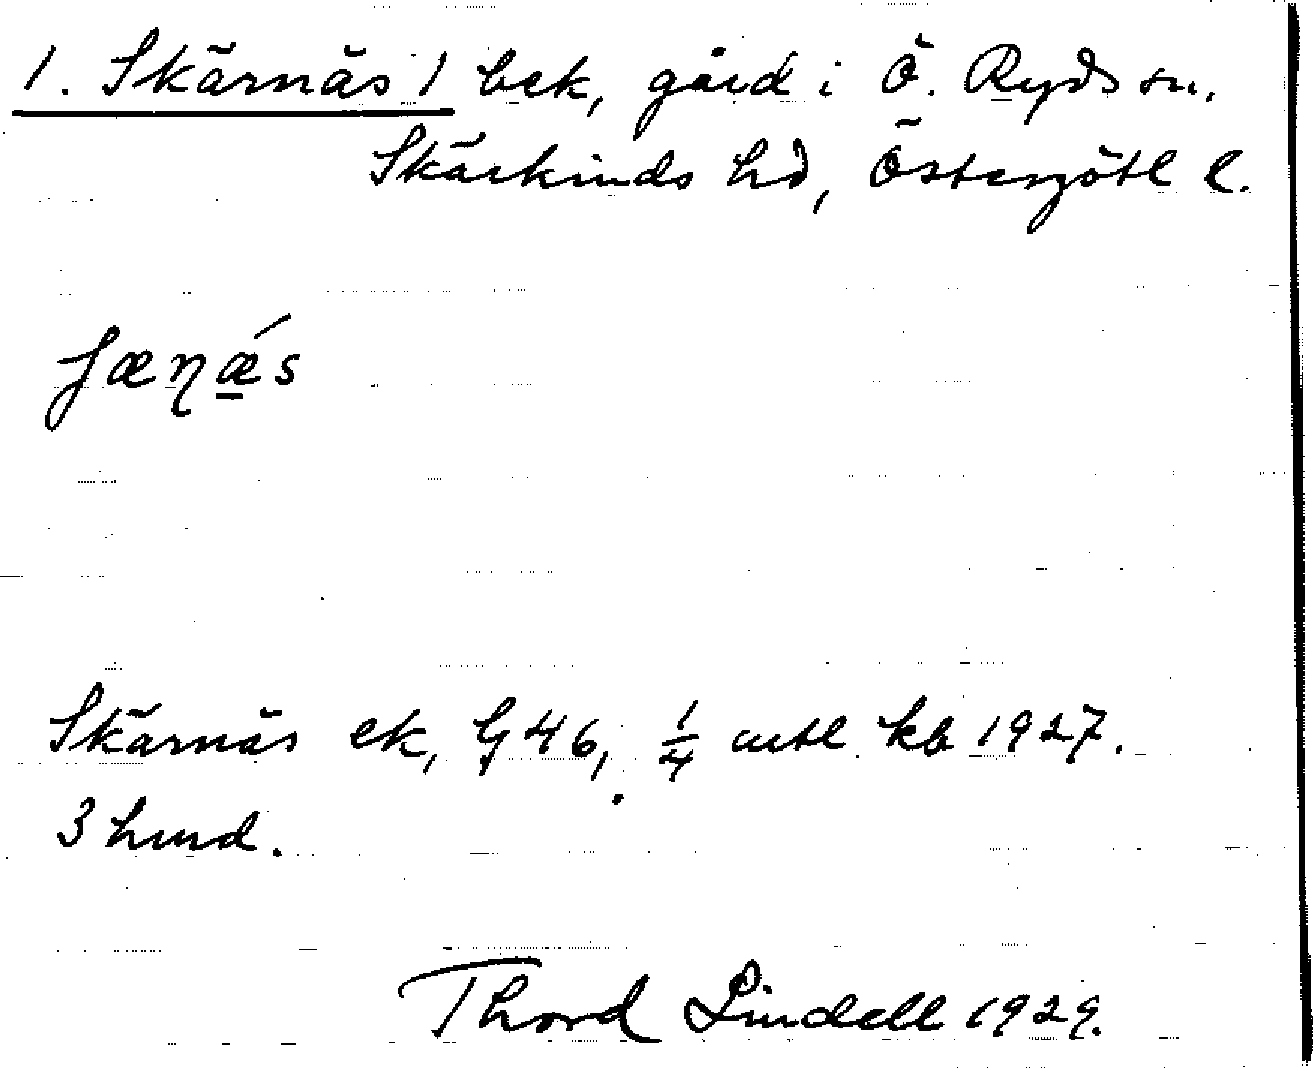 1. Skärnäs 1 bek, gård i Ö. Ryds sn.
Skärkinds hd, Östergötl l.
ʃæɳǽs
Skärnäs ek, G 46, 1/4 mtl kb 1927.
3 hmd.
Thord Lindell 1929.